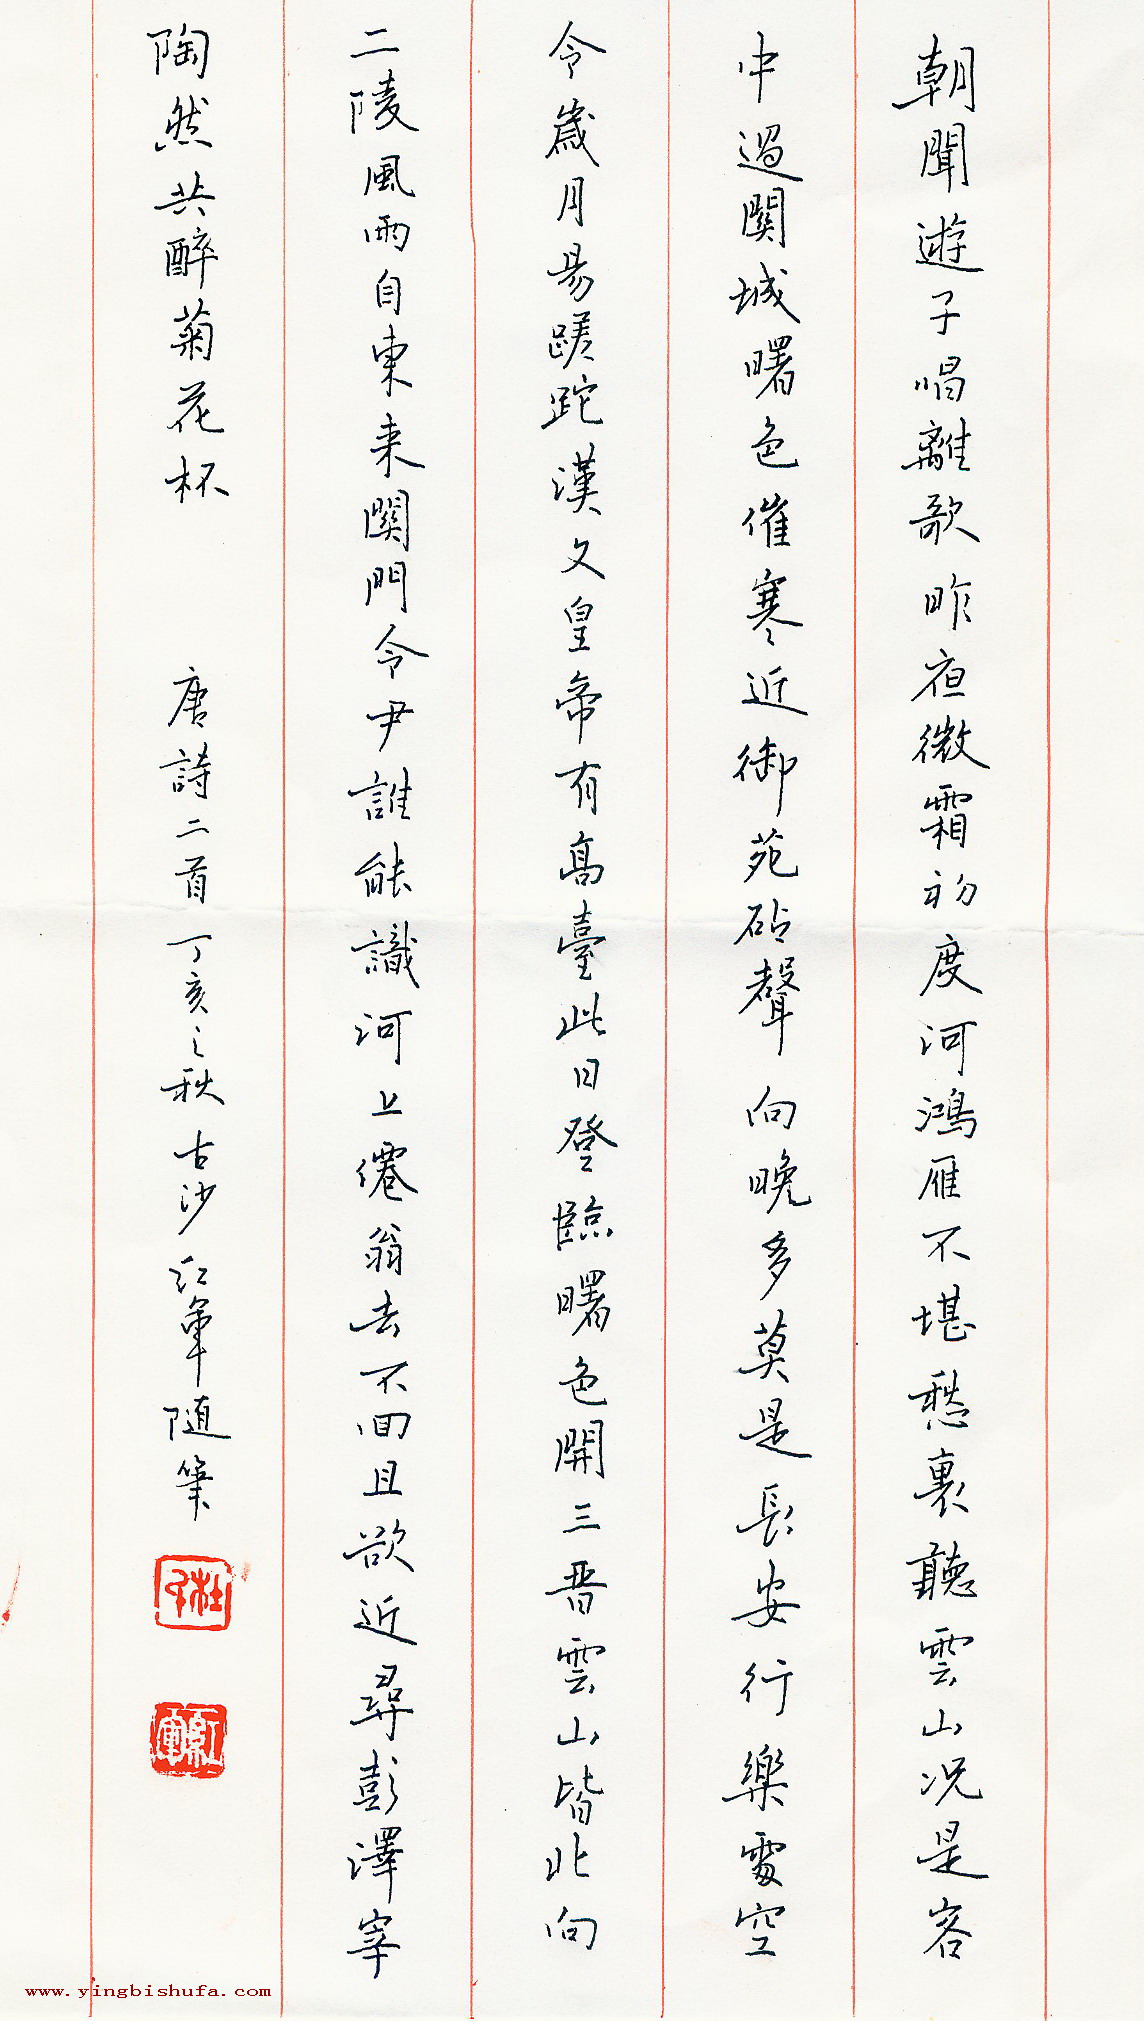 朝聞遊子唱離歌昨夜微霜初度河鴻雁不堪愁裏聽雲山况是客
中過關城曙色催寒近御苑砧聲向晚多莫是長安行樂處空
令歲月易蹉跎漢文皇帝有高臺此日登臨曙色開三晋雲山皆北向
二陵風雨自東来關門令尹誰能識河上僊翁去不回且欲近尋彭澤宰
陶然共醉菊花杯 唐詩二首丁亥之秋古沙紅軍随筆
杜
紅軍
www.yingbishufa.com